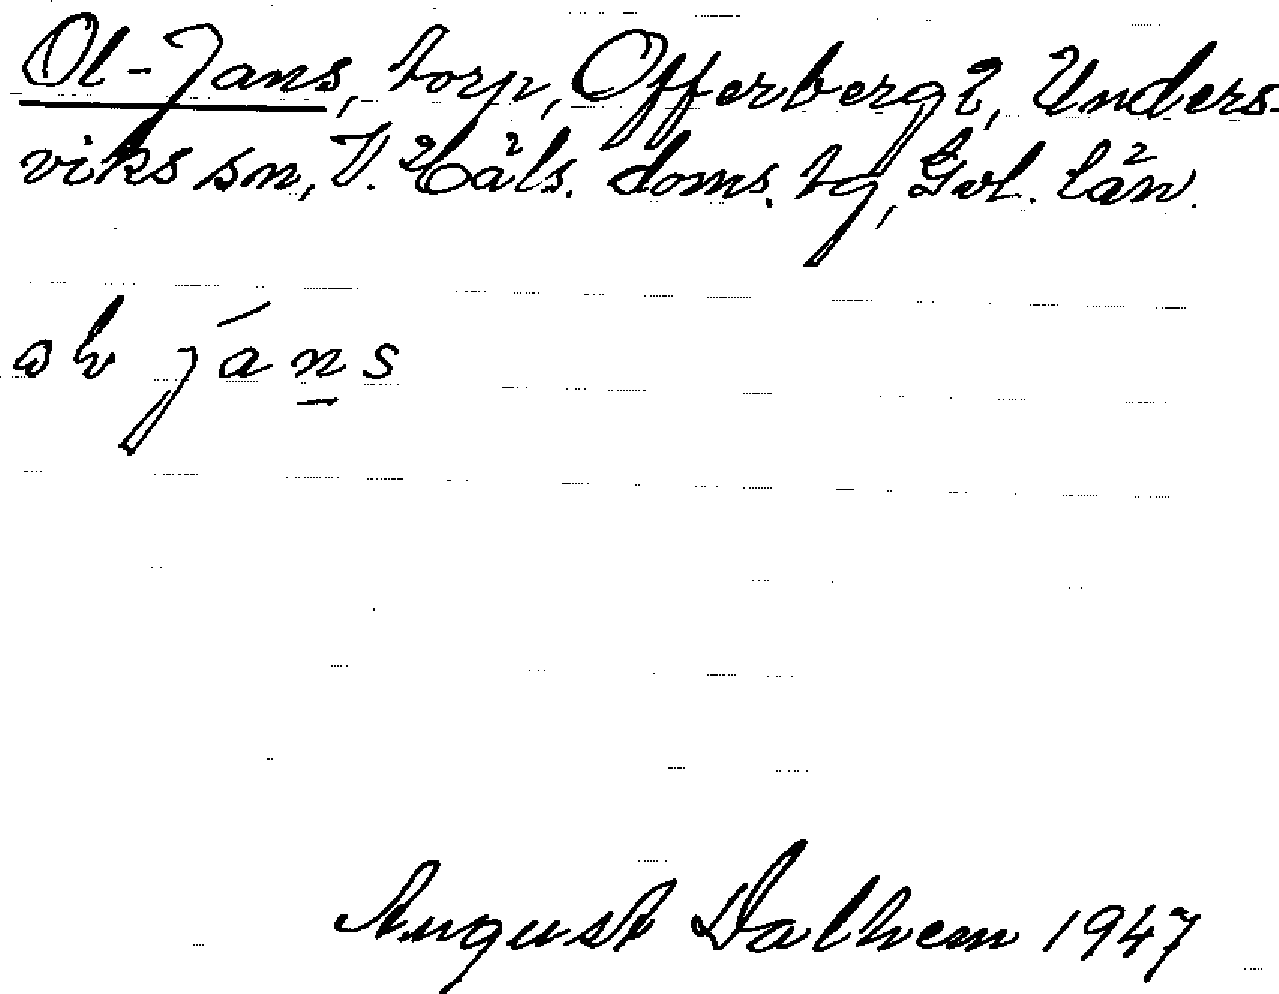 Ol-Jans, torp, Offerberg 2, Unders-
viks sn, V. Häls. doms. tg, Gvl. län.
jáns
August Dalhem 1947